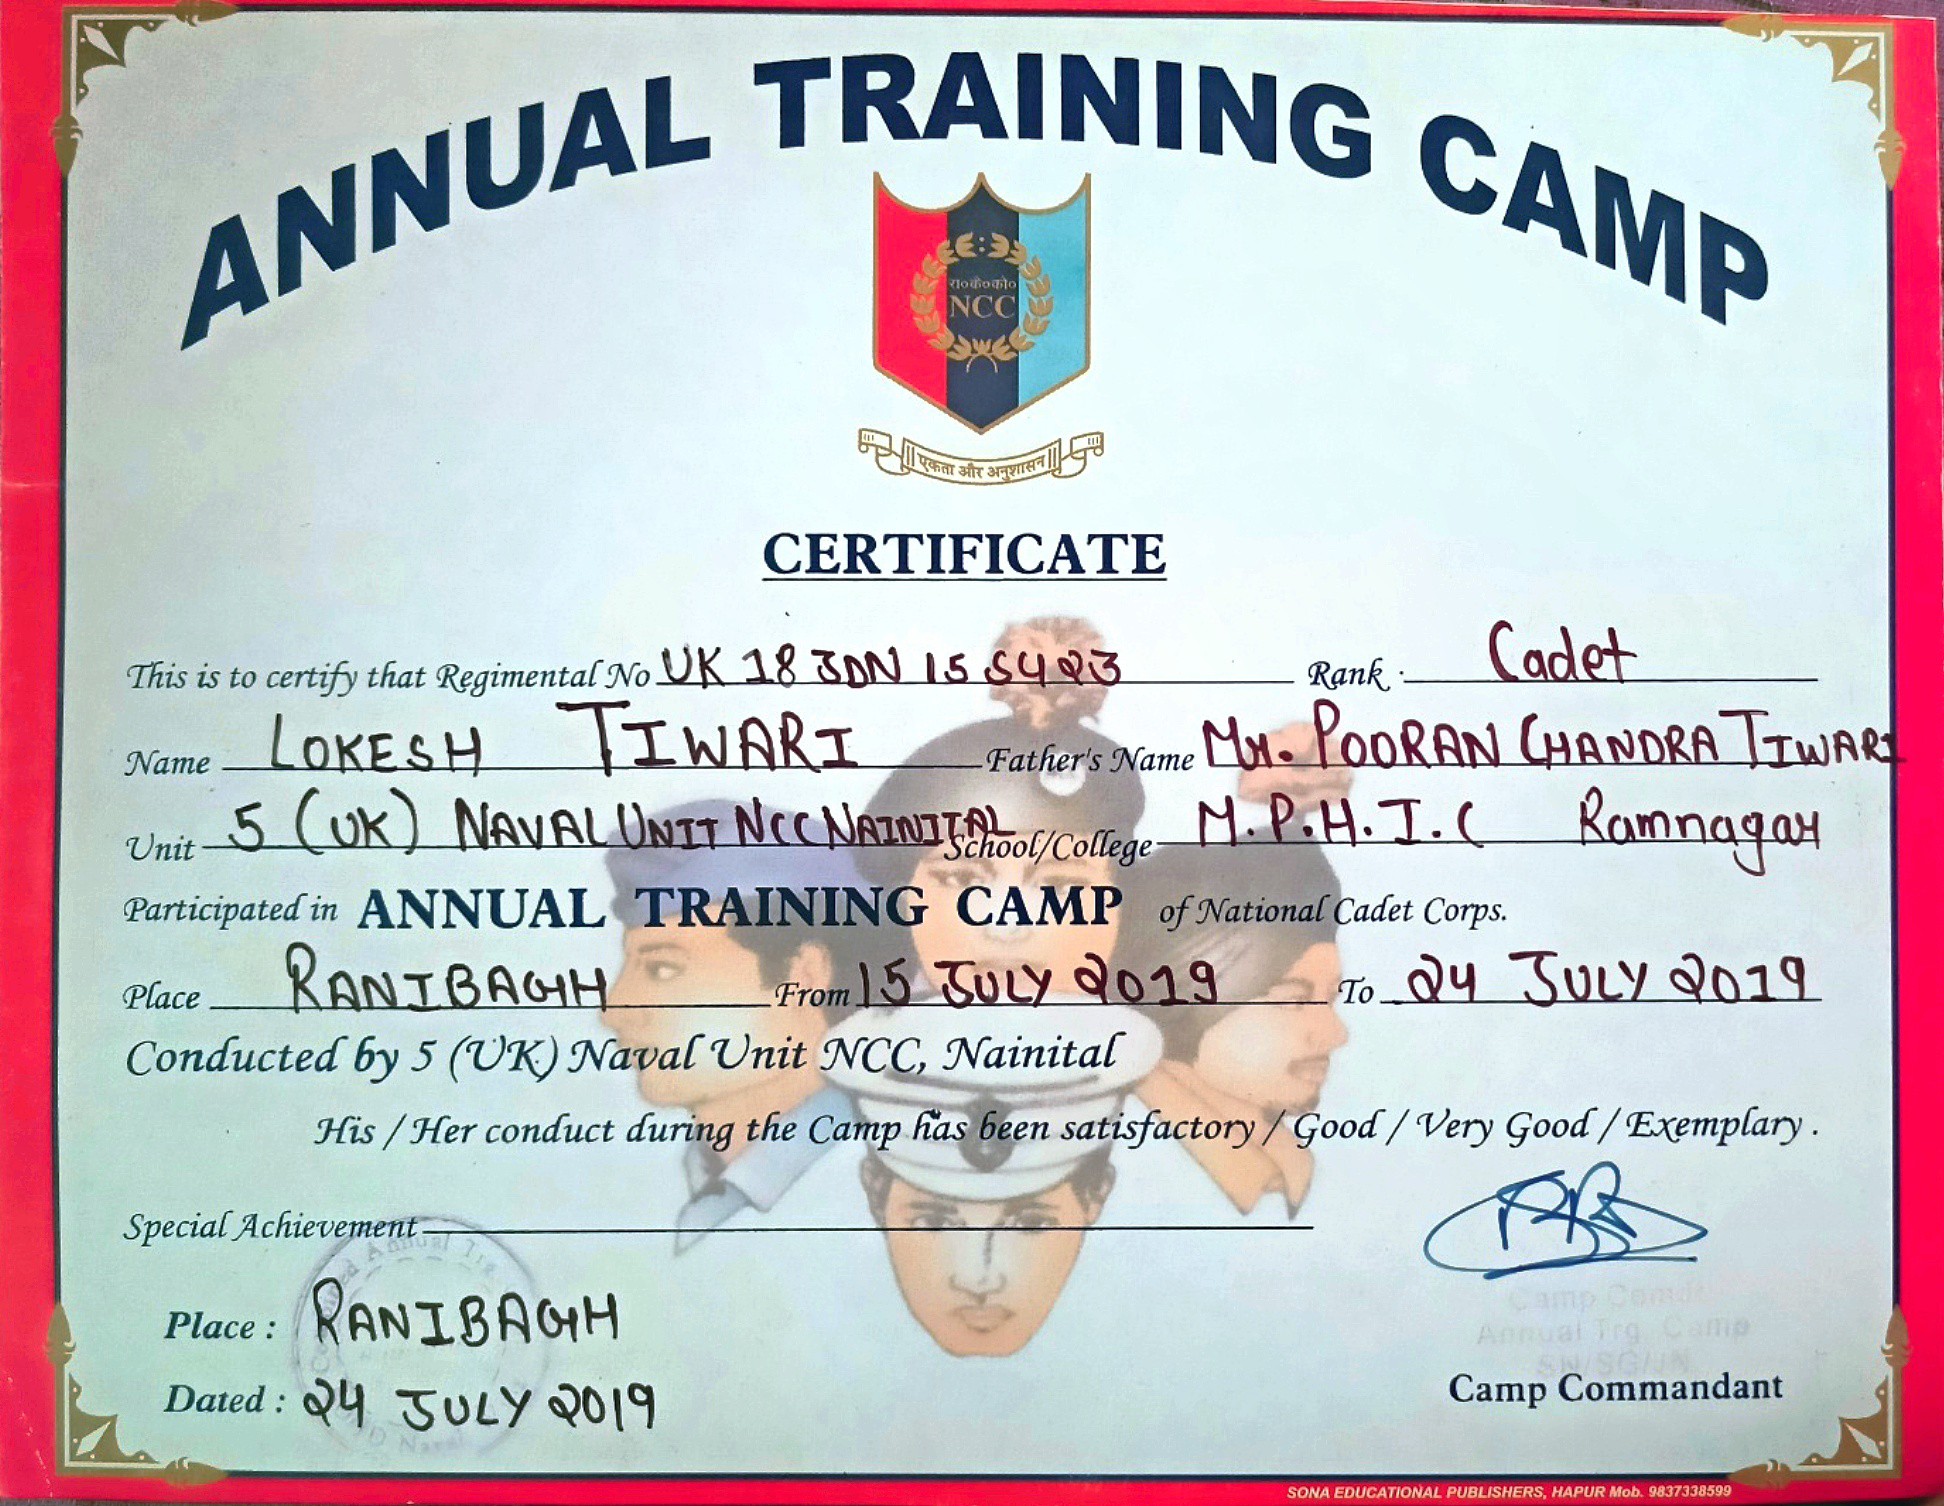 ANNUAL TRAINING CAMP
रा०कै०को०
NCC
॥ एकता और अनुशासन ॥
CERTIFICATE
This is to certify that Regimental No UK 18 JDN 15 5423 Rank : Cadet
Name LOKESH TIWARI Father's Name Mr. POORAN CHANDRA TIWARI
Unit 5 (UK) NAVAL UNIT NCC NAINITAL School/College M.P.H.I.C Ramnagar
Participated in ANNUAL TRAINING CAMP of National Cadet Corps.
Place RANIBAGH From 15 JULY 2019 To 24 JULY 2019
Conducted by 5 (UK) Naval Unit NCC, Nainital
His / Her conduct during the Camp has been satisfactory / Good / Very Good / Exemplary .
Special Achievement
Annual Trg.
Place : RANIBAGH
Dated : 24 JULY 2019
Naval
Camp
Annual Trg Camp
SW/SG/JN
Camp Commandant
SONA EDUCATIONAL PUBLISHERS, HAPUR Mob. 9837338599